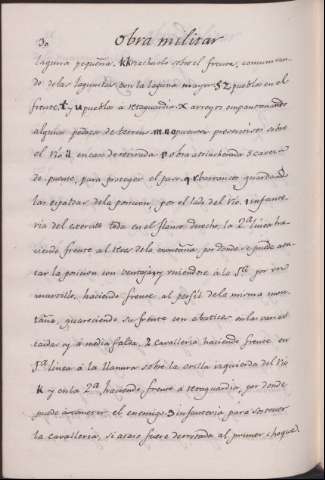 30 Obra militar
laguna pequeña. kk rechado sobre el frente, comunican-
do delas lagunitas con la laguna mayor yz pueblos en el
frente, t y u pueblos a retaguardia x arroyos empantanando
algunos pedazos de terreno. m n o puentes provisorios sobre
el Río ll en caso de retirada p obra atrincherada ò cavera
de puente, para proteger el paso q r barrancos guardando
las espaldas dela posicion, por el lado del Río. 1 infante
ria del exercito toda en el flanco derecho, la 2.ª linea ha-
ciendo frente al reves dela montaña, por donde se puede ata-
car la posicion con ventajas y viniendo à la 1.ª por un
murzillo, haciendo frente al perfil dela misma mon-
taña, guareciendo su frente con abatices en las varias
caidas ò á media falda. 2 cavalleria haciendo frente en
1.ª linea à la llanura sobre la orilla izquierda del Río
k y en la 2.ª haciendo frente à retaguardia, por donde
puede acometer el enemigo 3 infanteria para sostener
la cavalleria, si acaso fuere derrotada al primer choque